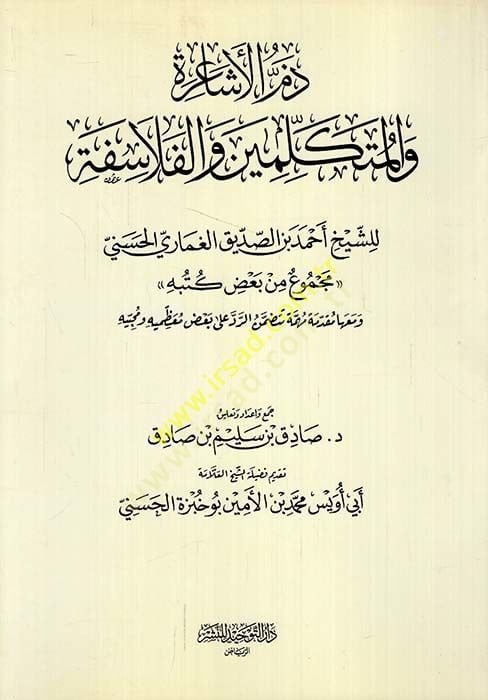 ذم الأشاعرة
والمتكلمين والفلاسفة
للشيخ أحمد بن الصديق الغماري الحسني
«مجموع من بعض كتبه»
ومعها مقدمة مهمة تتضمن الرد على بعض معظميه ومحبيه
جمع وإعداد وتعليق
د. صادق بن سليم بن صادق
تقديم فضيلة الشيخ العلامة
أبي أويس محمد بن الأمين بوخبزة الحسني
دار التوحيد للنشر
الرياض
www.irsad.com.tr